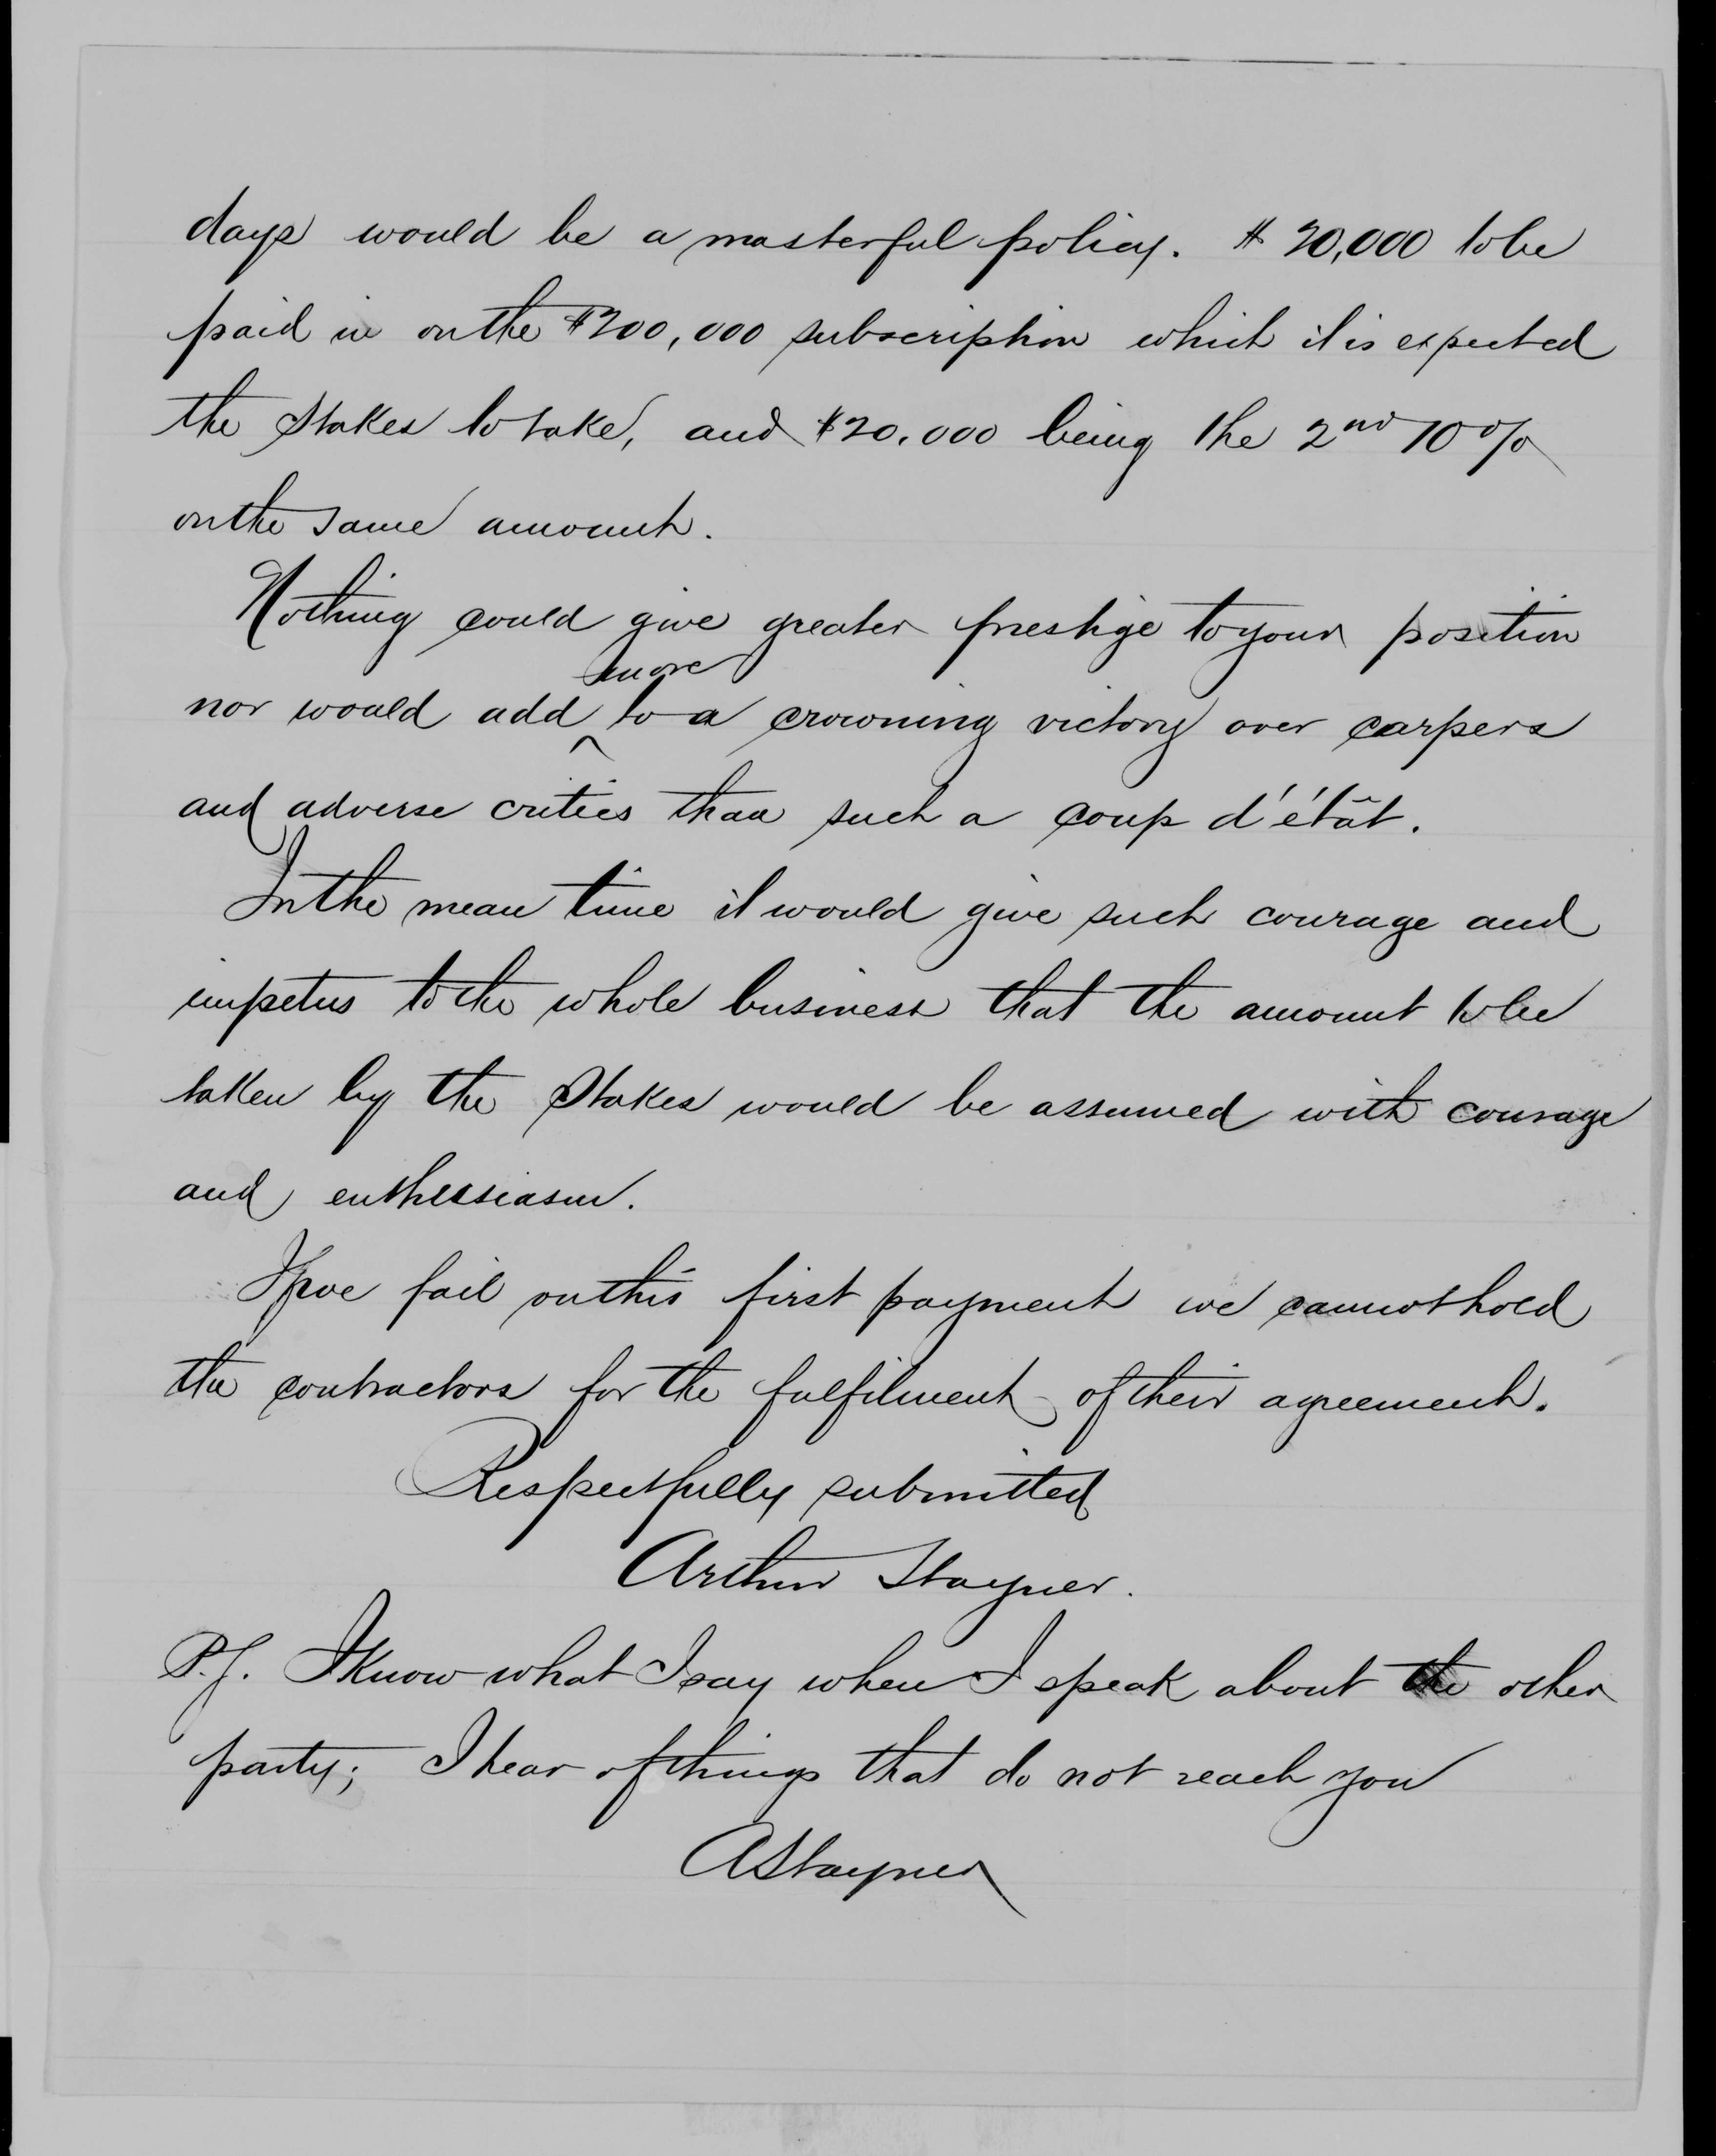 days would be a masterful policy. $20,000 to be
paid in on the $200,000 subscription which it is expected
the Stakes to take, and $20.000 being the 2nd 10%
on the same amount.
Nothing could give greater prestige to your position
more
nor would add ^ to a crowning victory over carpers
and adverse critics than such a coup d'étât.
In the mean time it would give such courage and
impetus to the whole business that the amount to be
taken by the Stakes would be assumed with courage
and enthusiasm.
If we fail on this first payment we cannot hold
the contractors for the fulfilment of their agreement.
Respectfully submitted
Arthur Stayner.
P.S. I know what I say when I speak about the other
party; I hear of things that do not reach you
A Stayner